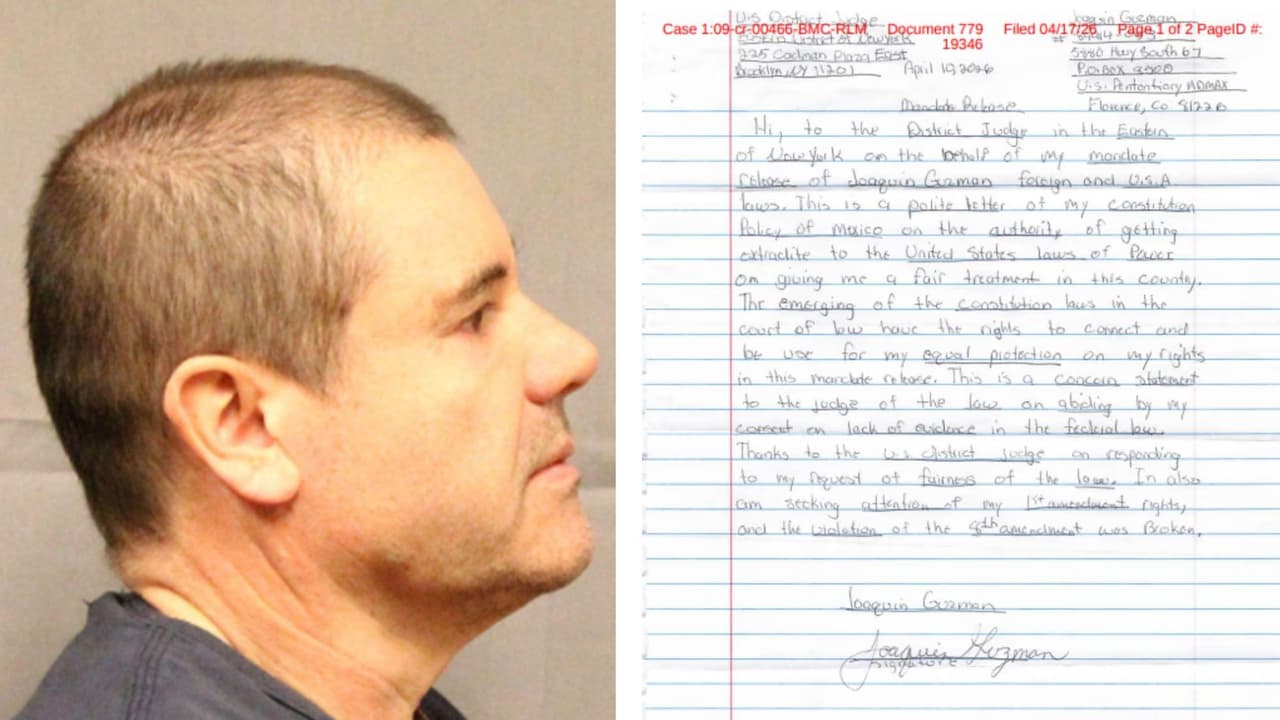 U.S District Judge
Eastern District of New York
225 Cadman Plaza East
Brooklyn, NY 11201
April 10, 2026
Joaquin Guzman
#
5880 Hwy South 67
P.O Box 8500
U.S. Pententiary ADMAX
Florence, Co 81226
Case 1:09-cr-00466-BMC-RLM Document 779 Filed 04/17/26 Page 1 of 2 PageID #:
19346
Mandate Release
Hi, to the District Judge in the Eastern
of New York on the behalf of my mandate
release of Joaquin Guzman foreign and U.S.A
laws. This is a polite letter of my constitution
Policy of mexico on the authority of getting
extradite to the United States laws of Power
on giving me a fair treatment in this country.
The emerging of the constitution laws in the
court of law have the rights to connect and
be use for my equal protection on my rights
in this mandate release. This is a concern statement
to the judge of the law on abiding by my
consent on lack of evidence in the federal law.
Thanks to the U.S district Judge on responding
to my request of fairness of the law. In also
am seeking attention of my 1st amendment rights,
and the violation of the amendment was Broken.
Joaquin Guzman
Joaquin Guzman
Signature